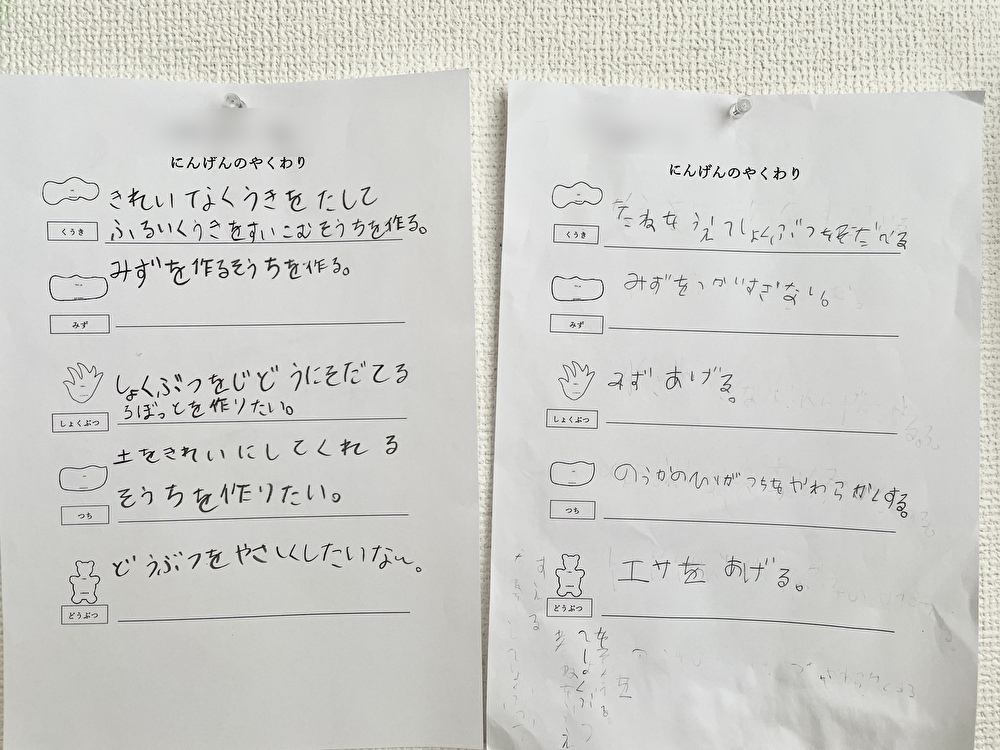 にんげんのやくわり
きれいなくうきをたして
くうき
ふるいくうきをすいこむそうちを作る。
みずを作るそうちを作る。
みず
しょくぶつをじどうにそだてる
ろぼっとを作りたい。
しょくぶつ
土をきれいにしてくれる
そうちを作りたい。
つち
どうぶつをやさしくしたいな〜。
どうぶつ
にんげんのやくわり
たねをうえてしょくぶつをそだてる
くうき
みずをつかいすぎない。
みず
みずあげる。
しょくぶつ
のうかのひとがつちをやわらかくする。
つち
エサをあげる。
どうぶつ